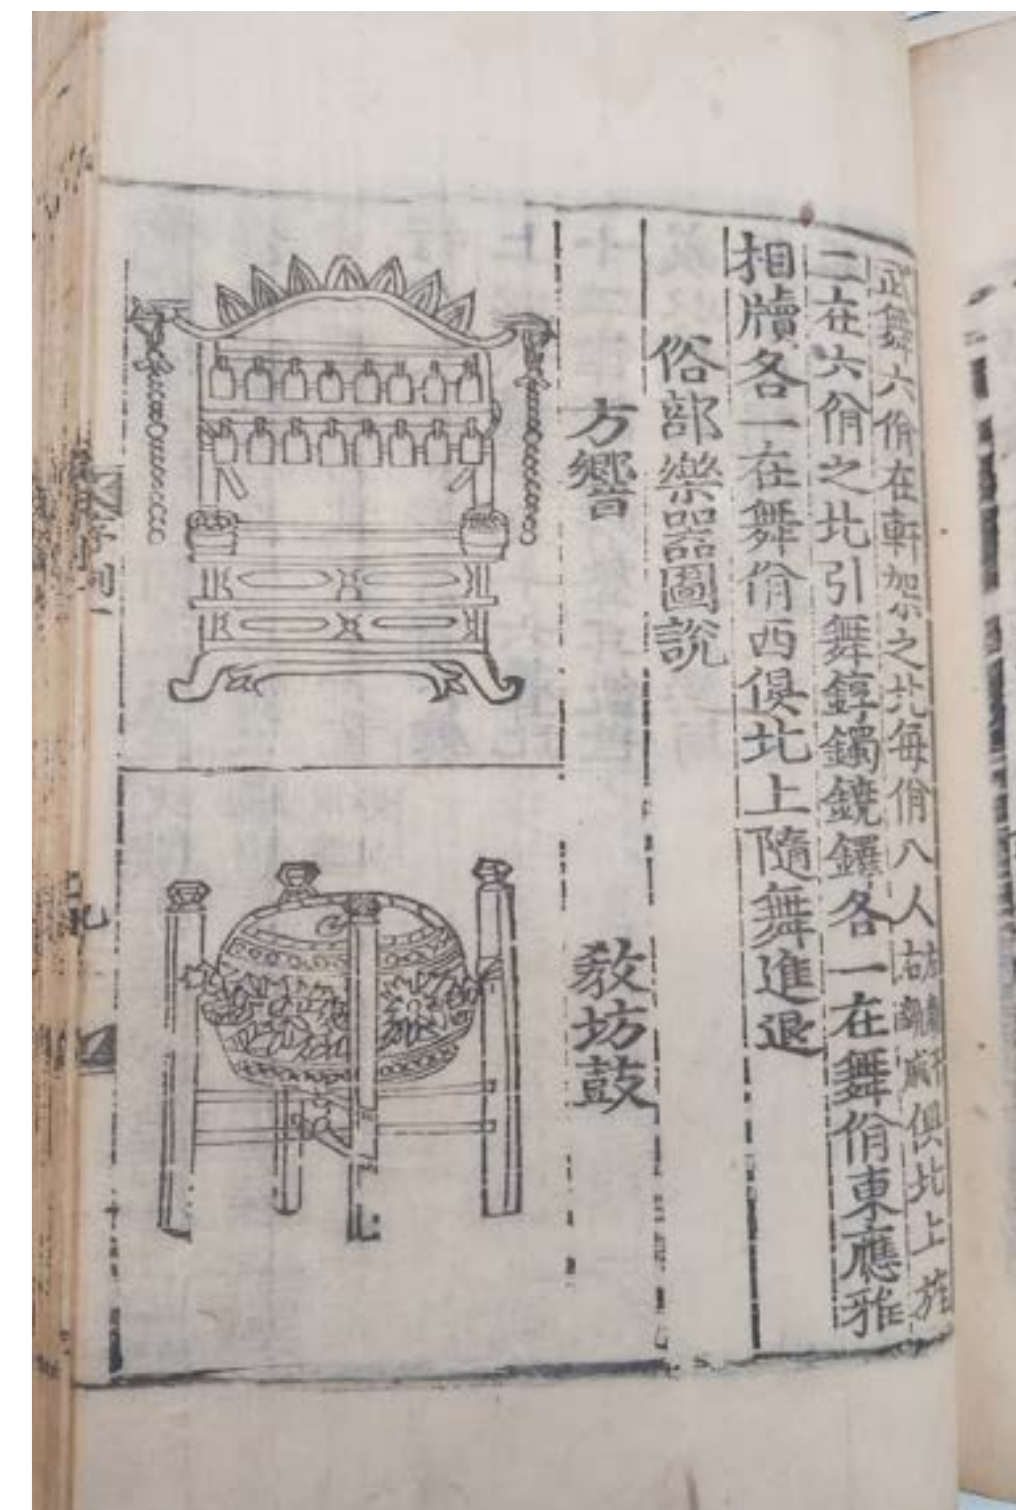 武舞六佾在軒架之北每佾八人左
右
俱北上旌
二在六佾之北引舞錞鐲鐃鐸各一在舞佾東應雅
相牘各一在舞佾西俱北上隨舞進退
俗部樂器圖說
方響
敎坊鼓